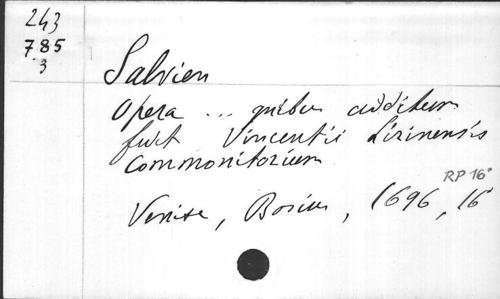 243
785
3
Salvien
Opera ... quibus additum
fuit Vincentii Lirinensis
Commonitorium
RP 16°
Venise, Bosius, 1696, 16°